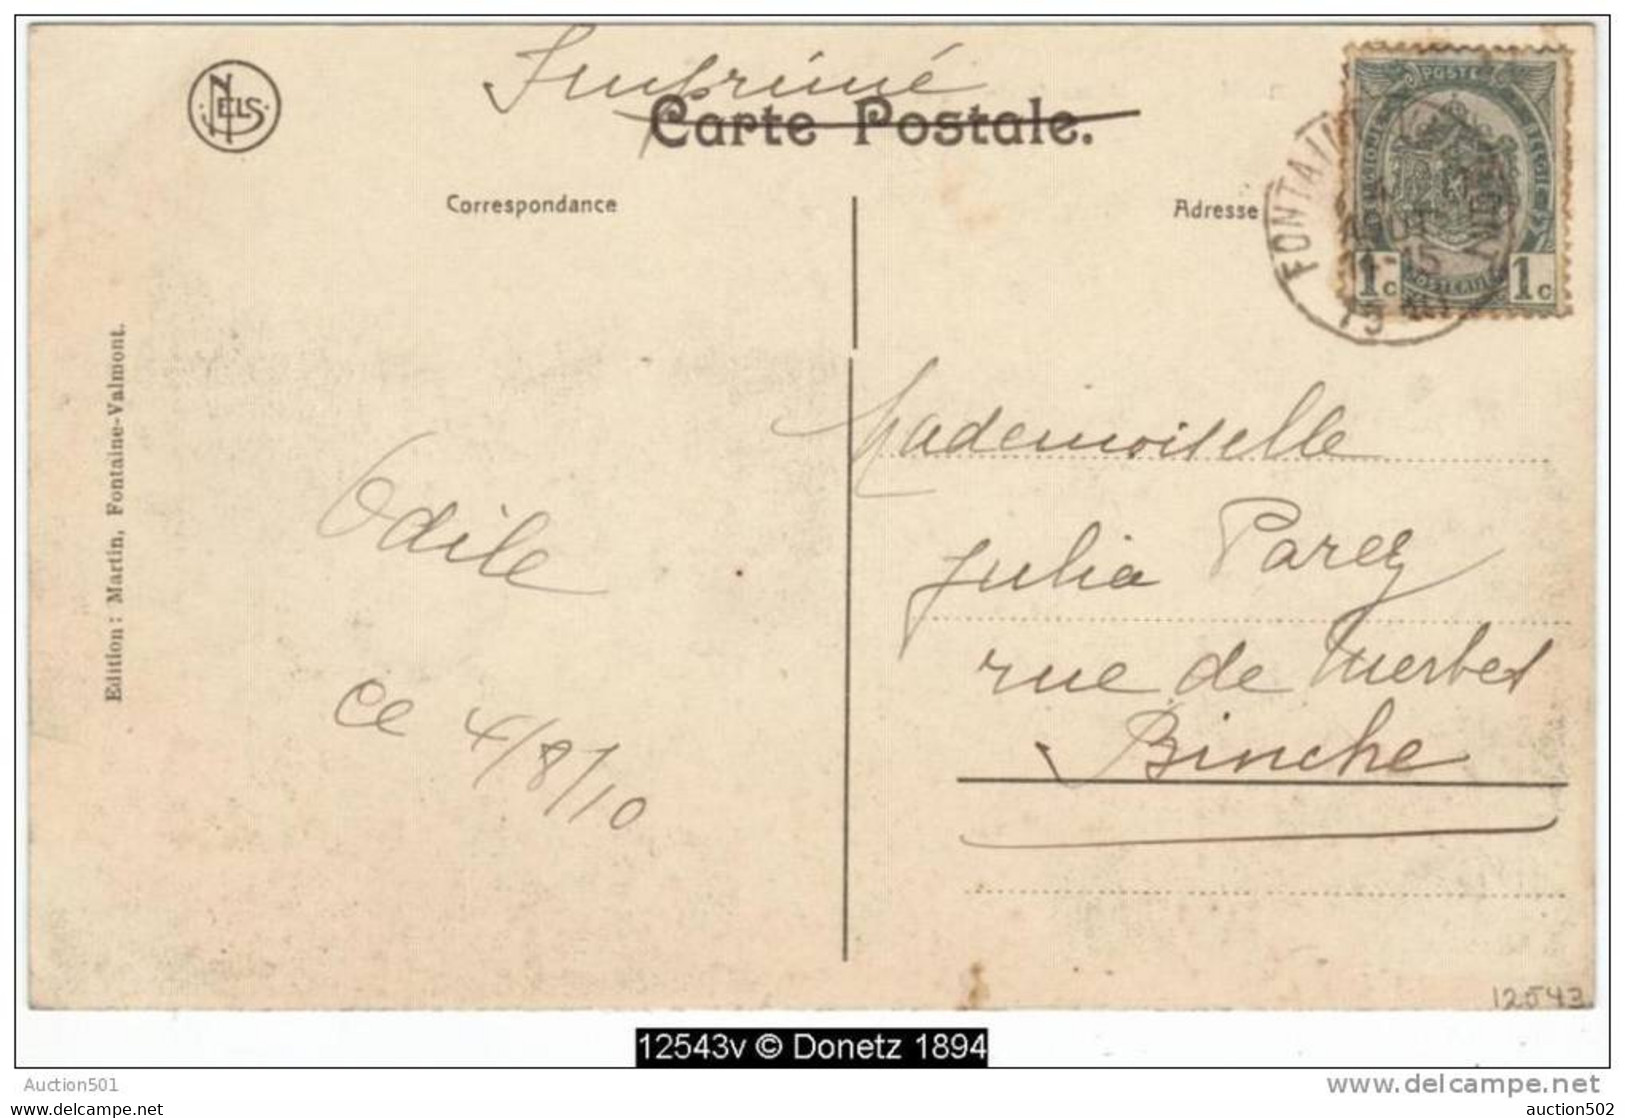 Imprimé
NELS
Carte Postale.
Correspondance
Adresse
POSTE
BELGIQUE
BELGIE
1c
1c
FONTAINE
AOUT
15
Edition : Martin, Fontaine-Valmont.
Mademoiselle
Julia Parez
rue de Merbes
Binche
Odile
ce 4/8/10
12543
12543v © Donetz 1894
Auction501
auction501.delcampe.net
www.delcampe.net
auction502